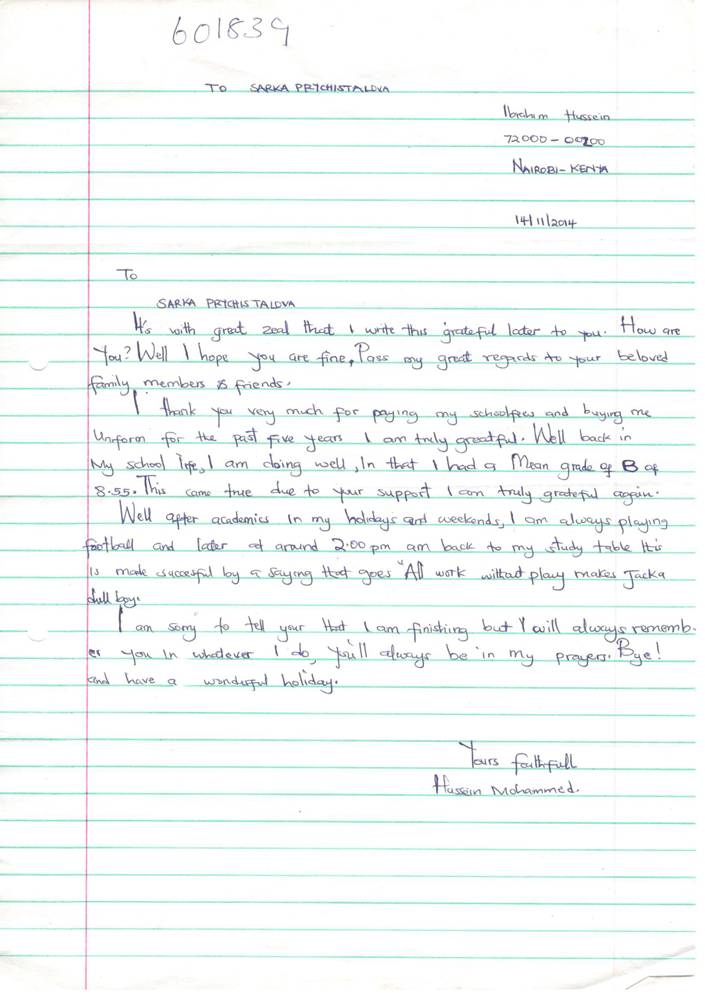 601839
TO SARKA PRYCHISTALOVA
Ibrahim Hussein
72000-00200
NAIROBI-KENYA
14/11/2014
To
SARKA PRYCHISTALOVA
It's with great zeal that I write this grateful later to you. How are
You? Well I hope you are fine, Pass my great regards to your beloved
family members & friends.
I thank you very much for paying my schoolfees and buying me
Uniform for the past five years I am truly greatful. Well back in
My school life, I am doing well, In that I had a Mean grade of B of
8.55. This came true due to your support I am truly grateful again.
Well after academics in my holidays and weekends, I am always playing
football and later at around 2:00 pm am back to my study table
is made succesful by a saying that goes "All work without play makes Jack a
dull boy.
I am sorry to tell your that I am finishing but I will always rememb-
er you in whatever I do, you'll always be in my prayers. Bye!
and have a wonderful holiday.
Yours faithfull
Hussein Mohammed.